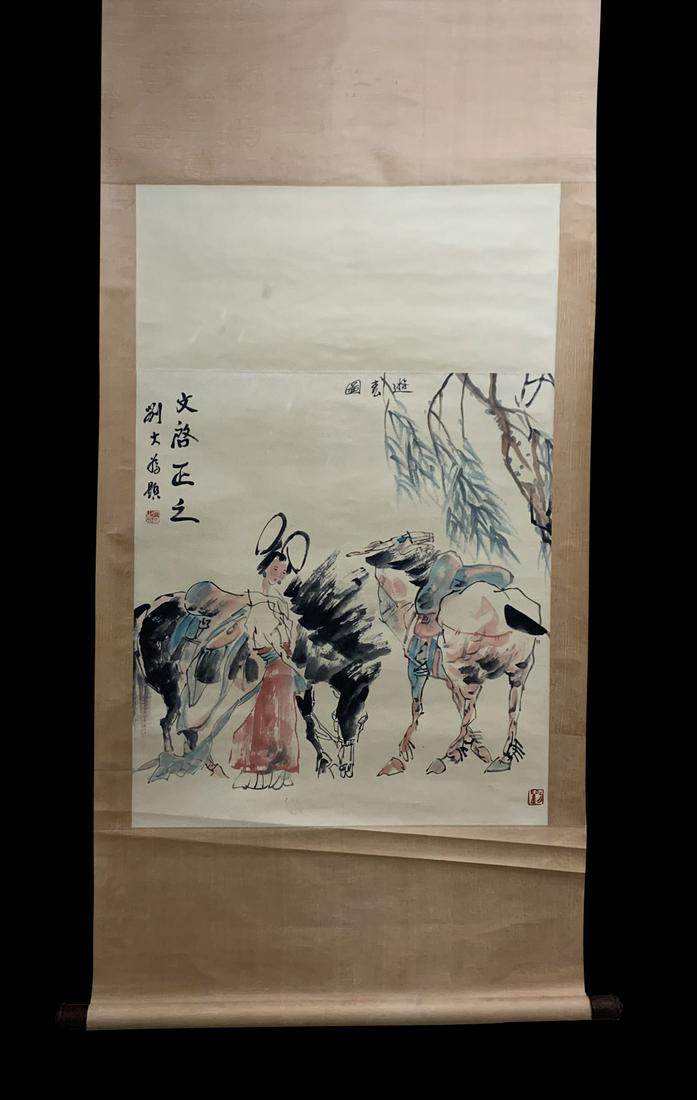 遊春圖
文啓正之
劉大為題